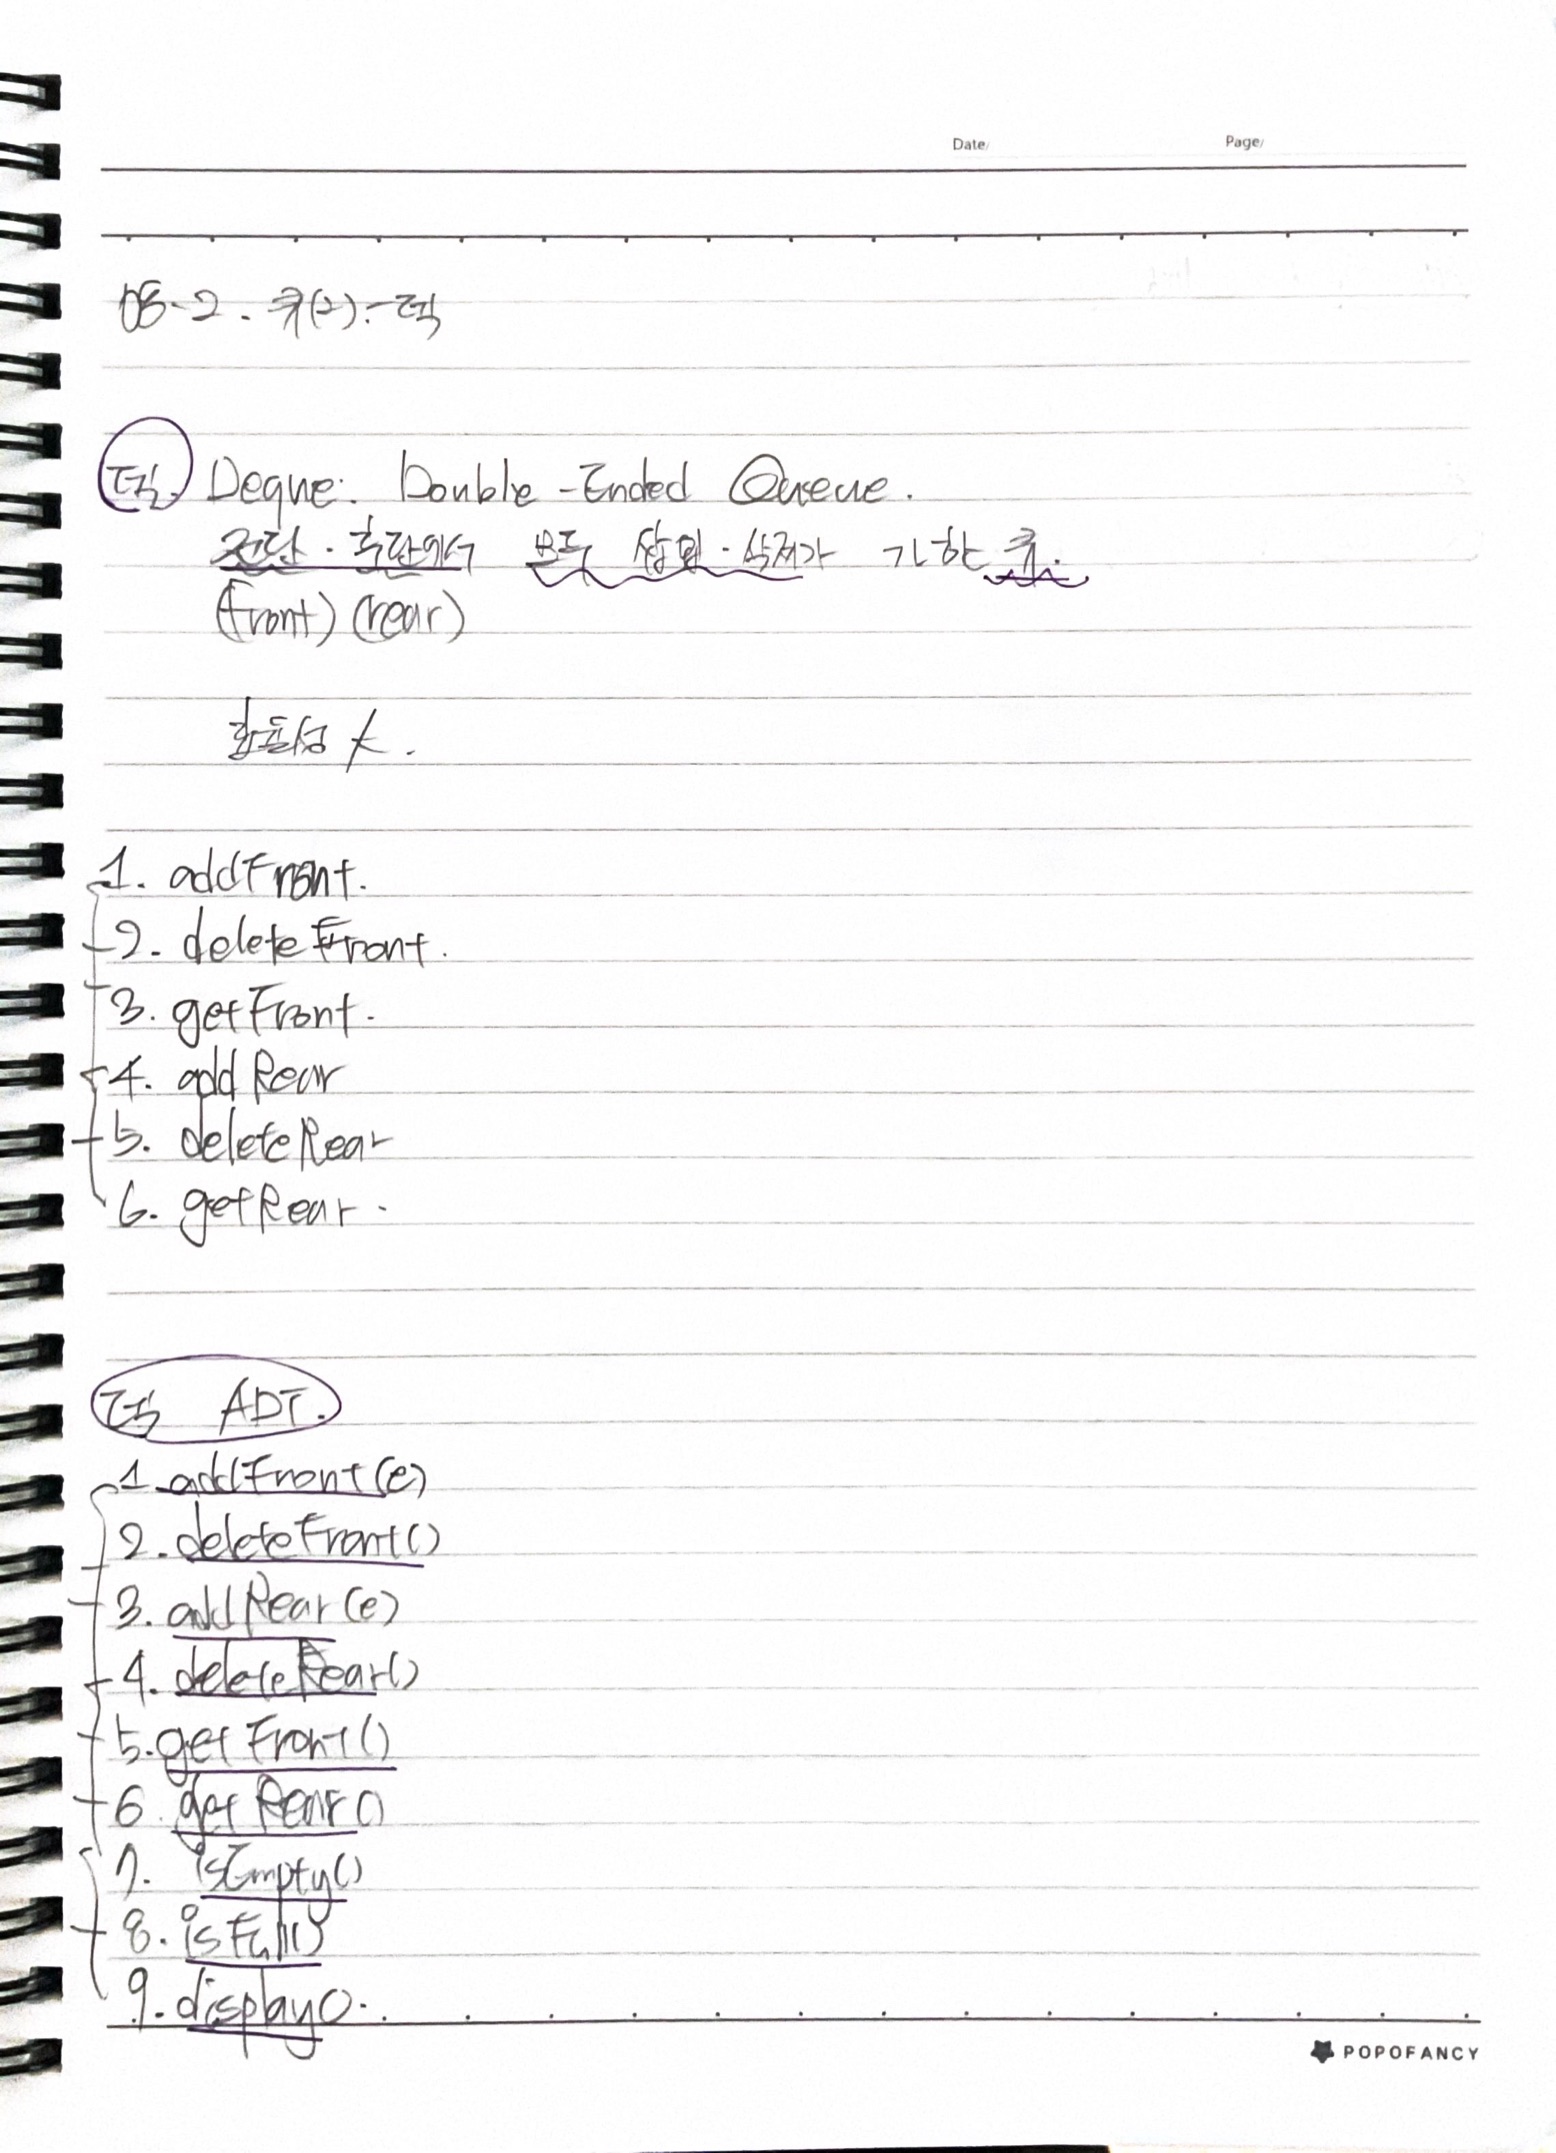 Date/ Page/
08-2. 큐(2)-덱
덱. Deque: Double-Ended Queue.
전단·후단에서 모두 삽입·삭제가 가한 큐.
(front) (rear)
활용성 大.
1. addFront.
2. deleteFront.
3. getFront.
4. addRear
5. deleteRear
6. getRear.
덱 ADT.
1. addFront(e)
2. deleteFront()
3. addRear(e)
4. deleteRear()
5. getFront()
6. getRear()
7. isEmpty()
8. isFull()
9. display().
POPOFANCY